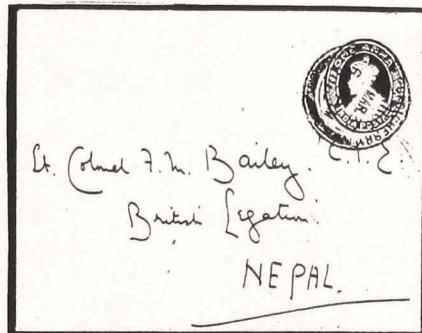 MAR.
Lt. Colonel F. M. Bailey. C.I.E
British Legation.
NEPAL.